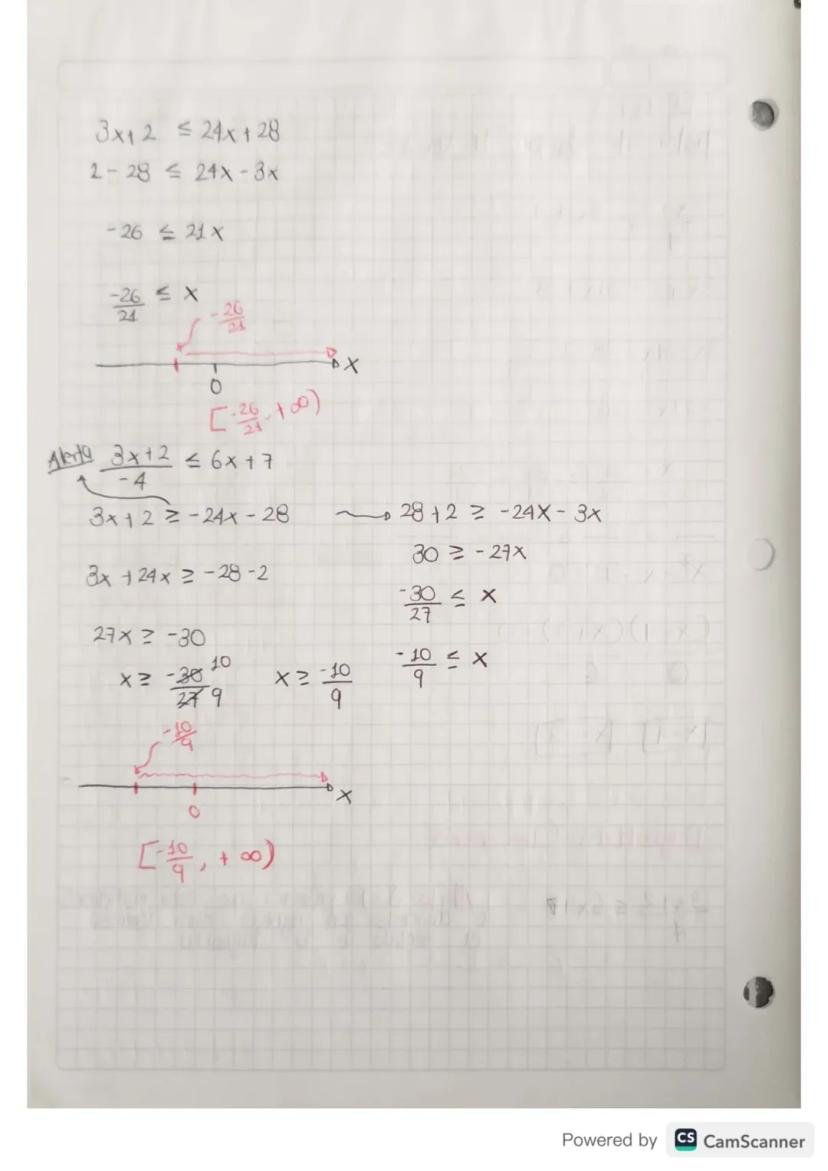 3x+2 ≤ 24x+28
2-28 ≤ 24x-3x
-26 ≤ 21x
-26/21 ≤ x
-26/21
x
0
[-26/21, +∞)
Alerta 3x+2/-4 ≤ 6x+7
3x+2 ≥ -24x-28 → 28+2 ≥ -24x-3x
30 ≥ -27x
3x+24x ≥ -28-2
-30/27 ≤ x
27x ≥ -30
x ≥ -30/27 10/9 x ≥ -10/9
-10/9 ≤ x
-10/9
x
0
[-10/9, +∞)
Powered by CS CamScanner